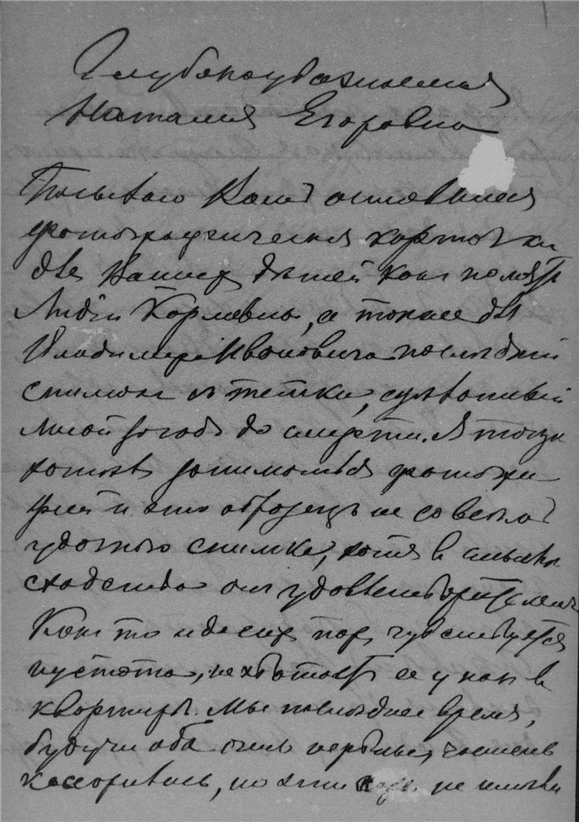 Глубокоуважаемая
Наталия Егоровна
Посылаю Вамъ оставшіяся
фотографическія карточки
для Вашихъ дѣтей какъ память
Лидіи Карловны, а также для
Владиміра Ивановича послѣдній
снимокъ съ тетки, сдѣланный
мной за годъ до смерти. Я тогда
занимался фотогра
фіей и это образецъ не совсѣмъ
удачнаго снимка, хотя в смыслѣ
сходства онъ удовлетворителенъ
Какъ то и до сихъ поръ чувствуется
пустота, не хватаетъ ее у насъ в
квартирѣ. Мы послѣднее время,
будучи оба очень нервны,
ссорились, но эти не имѣли